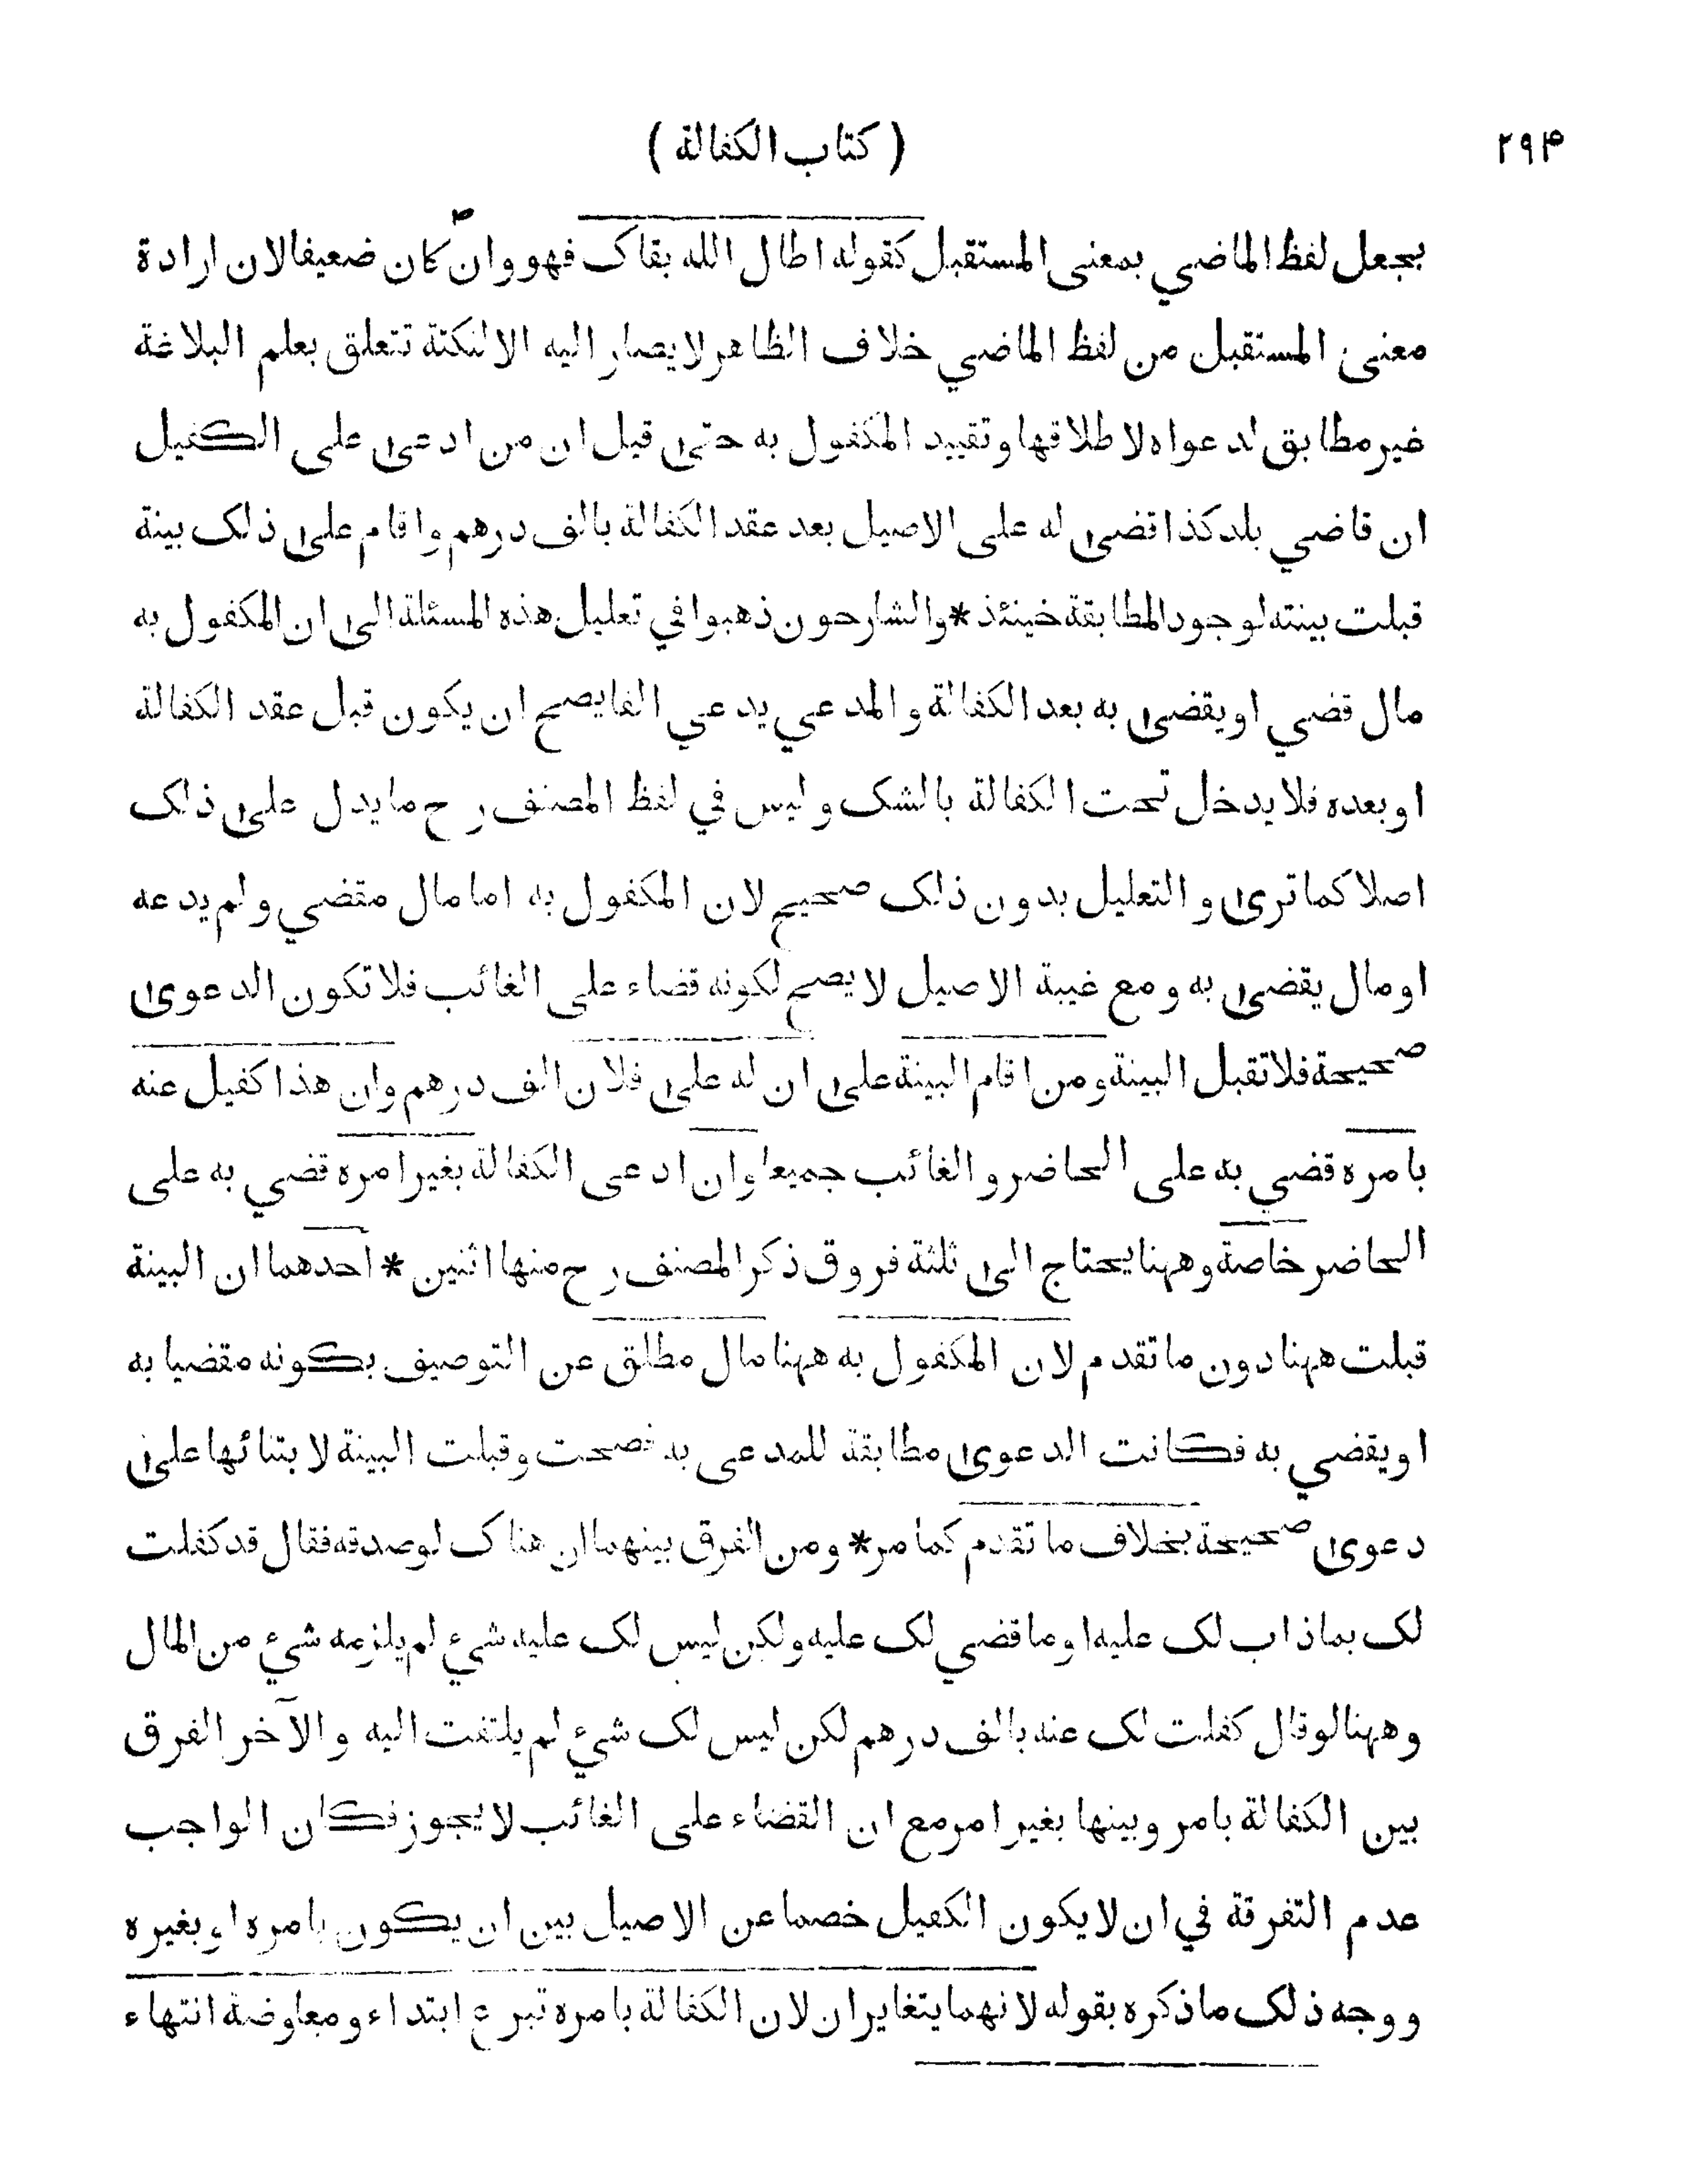 ٢٩۴
( كتاب الكفالة )
بجعل لفظ الماضي بمعنى المستقبل كقوله اطال الله بقاك فهو وان كان ضعيفا لان ارادة
معنى المستقبل من لفظ الماضي خلاف الظاهر لا يصار اليه الا لنكتة تتعلق بعلم البلاغة
غير مطابق لدعواه لاطلاقها وتقييد المكفول به حتى قيل ان من ادعى على الكفيل
ان قاضي بلد كذا قضى له على الاصيل بعد عقد الكفالة بالف درهم واقام على ذلك بينة
قبلت بينته لوجود المطابقة حينئذ * والشارحون ذهبوا في تعليل هذه المسئلة الى ان المكفول به
مال قضي او يقضى به بعد الكفالة و المدعي يدعي الفا يصح ان يكون قبل عقد الكفالة
او بعده فلا يدخل تحت الكفالة بالشك و ليس في لفظ المصنف رح ما يدل على ذلك
اصلا كما ترى و التعليل بدون ذلك صحيح لان المكفول به اما مال مقضي و لم يدعه
او مال يقضى به و مع غيبة الاصيل لا يصح لكونه قضاء على الغائب فلا تكون الدعوى
صحيحة فلا تقبل البينة ومن اقام البينة على ان له على فلان الف درهم وان هذا كفيل عنه
بامره قضي به على الحاضر و الغائب جميعا وان ادعى الكفالة بغير امره قضي به على
الحاضر خاصة وههنا يحتاج الى ثلثة فروق ذكر المصنف رح منها اثنين * احدهما ان البينة
قبلت ههنا دون ما تقدم لان المكفول به ههنا مال مطلق عن التوصيف بكونه مقضيا به
او يقضي به فكانت الدعوى مطابقة للمدعى به فصحت وقبلت البينة لابتنائها على
دعوى صحيحة بخلاف ما تقدم كما مر * و من الفرق بينهما ان هناك لو صدقه فقال قد كفلت
لك بما ذاب لك عليه او ما قضي لك عليه ولكن ليس لك عليه شيء لم يلزمه شيء من المال
وههنا لو قال كفلت لك عنه بالف درهم لكن ليس لك شيء لم يلتفت اليه و الآخر الفرق
بين الكفالة بامر وبينها بغير امر مع ان القضاء على الغائب لا يجوز فكان الواجب
عدم التفرقة في ان لا يكون الكفيل خصما عن الاصيل بين ان يكون بامره او بغيره
و وجه ذلك ما ذكره بقوله لانهما يتغايران لان الكفالة بامره تبرع ابتداء و معاوضة انتهاء